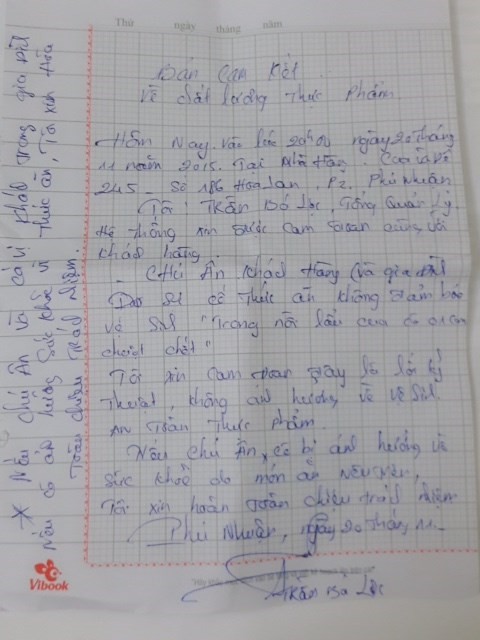 Thứ ngày tháng năm
Bản Cam Kết
Về chất lượng Thực Phẩm
Hôm Nay. Vào lúc 20h00 ngày 20 Tháng
11 năm 2015. Tại Nhà Hàng. Cua
245 - Số 186 Hoa Lan. P2. Phú Nhuận
Tôi Trần Bá Lộc, Tổng Quản Lý
Hệ Thống xin được Cam Đoan cùng với
khách hàng
- Chú Ân Khách Hàng (và gia đình
Do có Thức ăn không đảm bảo
về "Trong nồi lẩu cua có con
chết"
Tôi xin Cam đoan đây là lỗi kỹ
Thuật, không ảnh hưởng về Vệ Sinh
An Toàn Thực phẩm.
Nếu Chú Ân, có bị ảnh hưởng về
Sức khoẻ do món ăn nêu trên,
Tôi xin hoàn toàn chịu trách nhiệm
Phú Nhuận, ngày 20 Tháng 11
Trần Bá Lộc
* Nếu Chú Ân và các vị khách trong gia đình
Nếu có ảnh hưởng Sức khoẻ vì thức ăn, Tôi xin
toàn chịu trách nhiệm.
Vibook